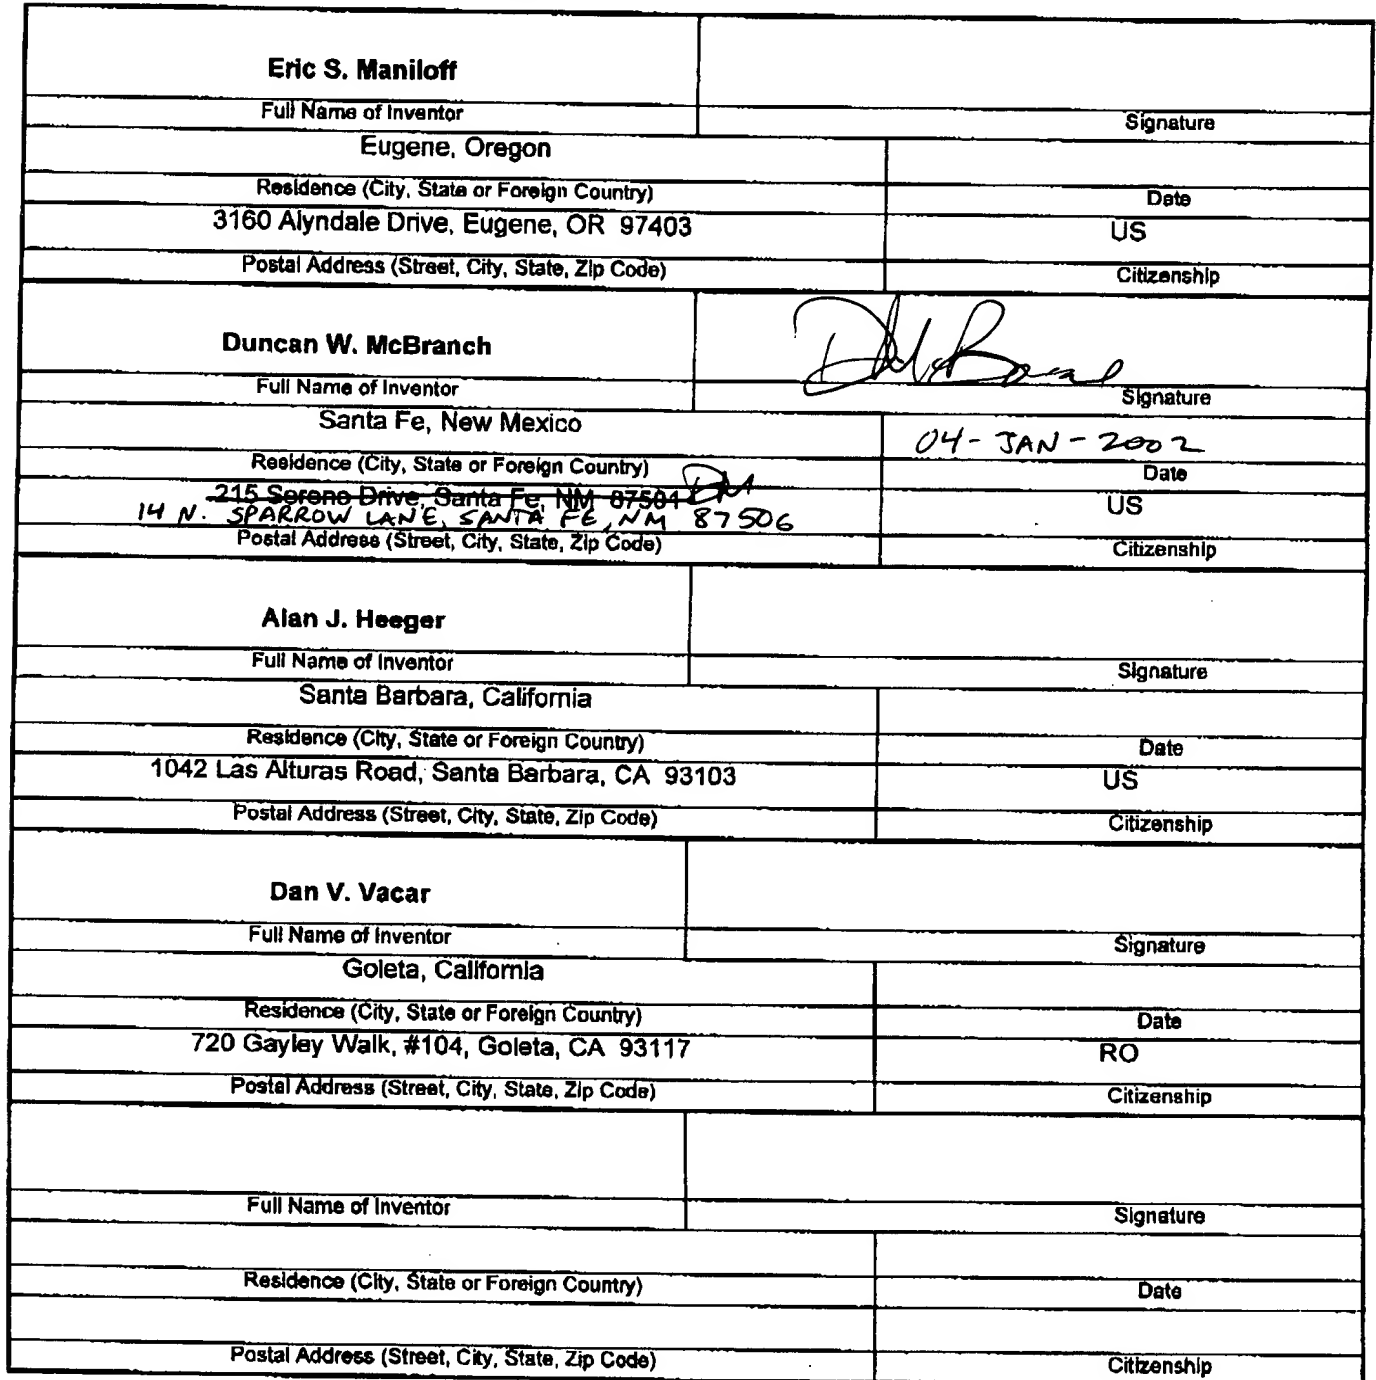 Eric S. Maniloff
Full Name of Inventor
Signature
Eugene, Oregon
Residence (City, State or Foreign Country)
Date
3160 Alyndale Drive, Eugene, OR 97403
US
Postal Address (Street, City, State, Zip Code)
Citizenship
Duncan W. McBranch
Full Name of Inventor
Signature
Santa Fe, New Mexico
04-JAN-2002
Residence (City, State or Foreign Country)
Date
215 Sereno Drive, Santa Fe, NM 87501 DM
US
14 N. SPARROW LANE, SANTA FE, NM 87506
Postal Address (Street, City, State, Zip Code)
Citizenship
Alan J. Heeger
Full Name of Inventor
Signature
Santa Barbara, California
Residence (City, State or Foreign Country)
Date
1042 Las Alturas Road, Santa Barbara, CA 93103
US
Postal Address (Street, City, State, Zip Code)
Citizenship
Dan V. Vacar
Full Name of Inventor
Signature
Goleta, California
Residence (City, State or Foreign Country)
Date
720 Gayley Walk, #104, Goleta, CA 93117
RO
Postal Address (Street, City, State, Zip Code)
Citizenship
Full Name of Inventor
Signature
Residence (City, State or Foreign Country)
Date
Postal Address (Street, City, State, Zip Code)
Citizenship